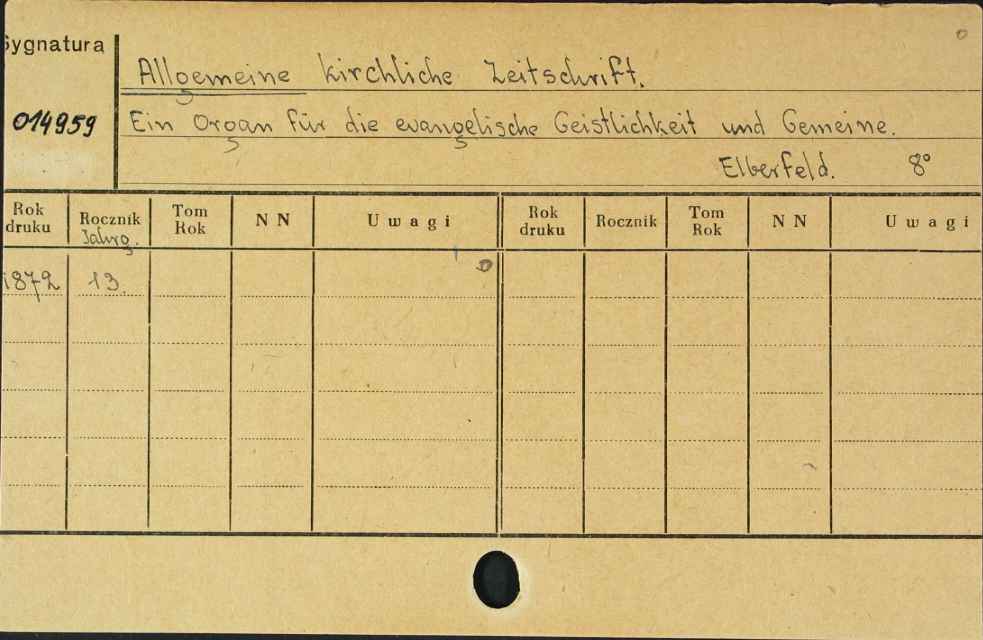 Sygnatura
Allgemeine kirchliche Zeitschrift.
014959
Ein Organ für die evangelische Geistlichkeit und Gemeine.
Elberfeld. 8°
Rok druku Rocznik Tom Rok NN Uwagi Rok druku Rocznik Tom Rok NN Uwagi
Jahrg.
1872 13.